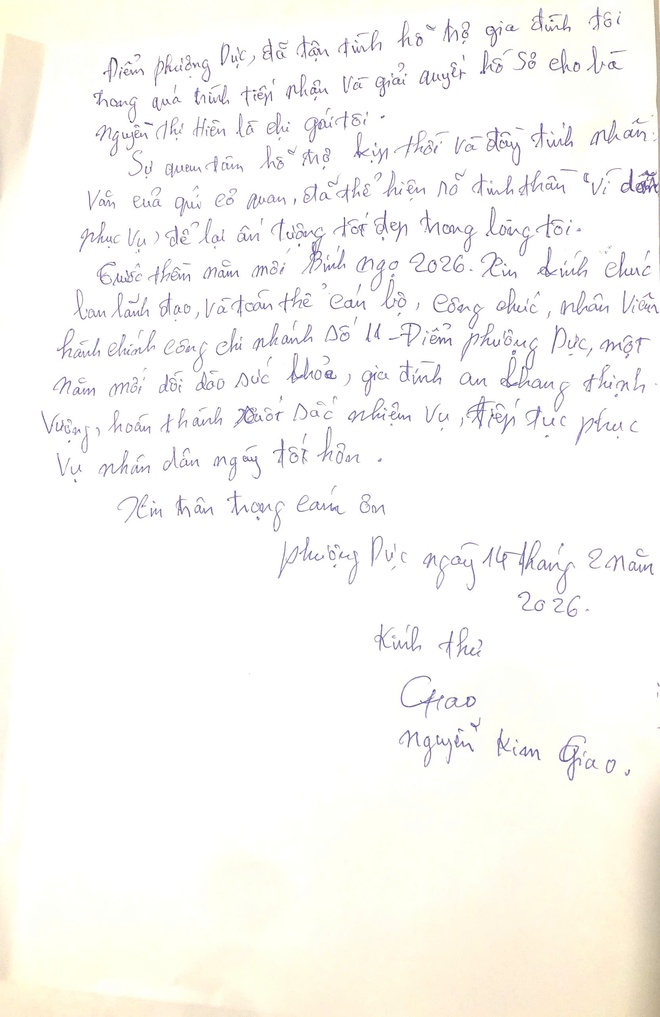 Điểm phượng Dực, đã tận tình hỗ trợ gia đình tôi
trong quá trình tiếp nhận và giải quyết hồ sơ cho bà
nguyễn thị Hiên là chị gái tôi.
Sự quan tâm hỗ trợ kịp thời và đầy tinh nhân
văn của quí cơ quan, đã thể hiện rõ tinh thần "vì dân
phục vụ, để lại ấn tượng tốt đẹp trong lòng tôi.
Trước thềm năm mới Bính ngọ 2026. Xin kính chúc
ban lãnh đạo, và toàn thể cán bộ, công chức, nhân viên
hành chính công chi nhánh số 11 - Điểm phượng Dực, một
năm mới dồi dào sức khỏe, gia đình an khang thịnh
vượng, hoàn thành xuất sắc nhiệm vụ, tiếp tục phục
vụ nhân dân ngày tốt hơn.
Xin trân trọng cảm ơn
phượng Dực ngày 14 tháng 2 năm
2026.
Kính thư
Giao
nguyễn Kim Giao.